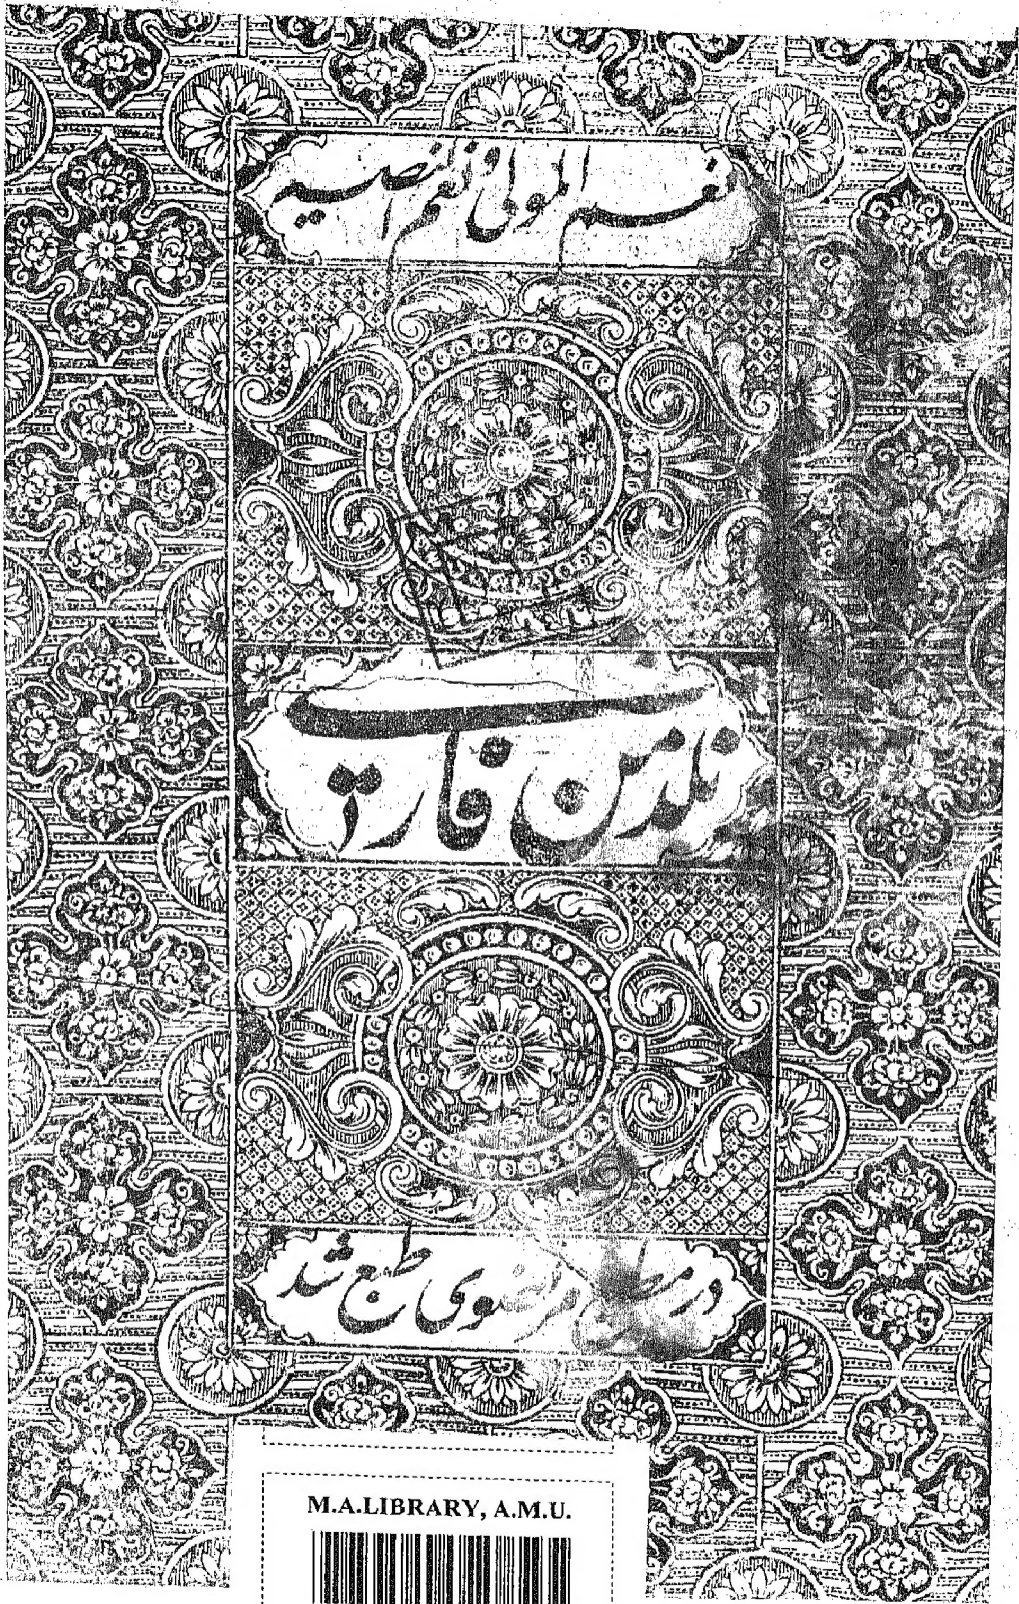 نعم المولی و نعم النصیر
نلدمن فارسی
در مطبع مرتضوی طبع شد
M.A.LIBRARY, A.M.U.